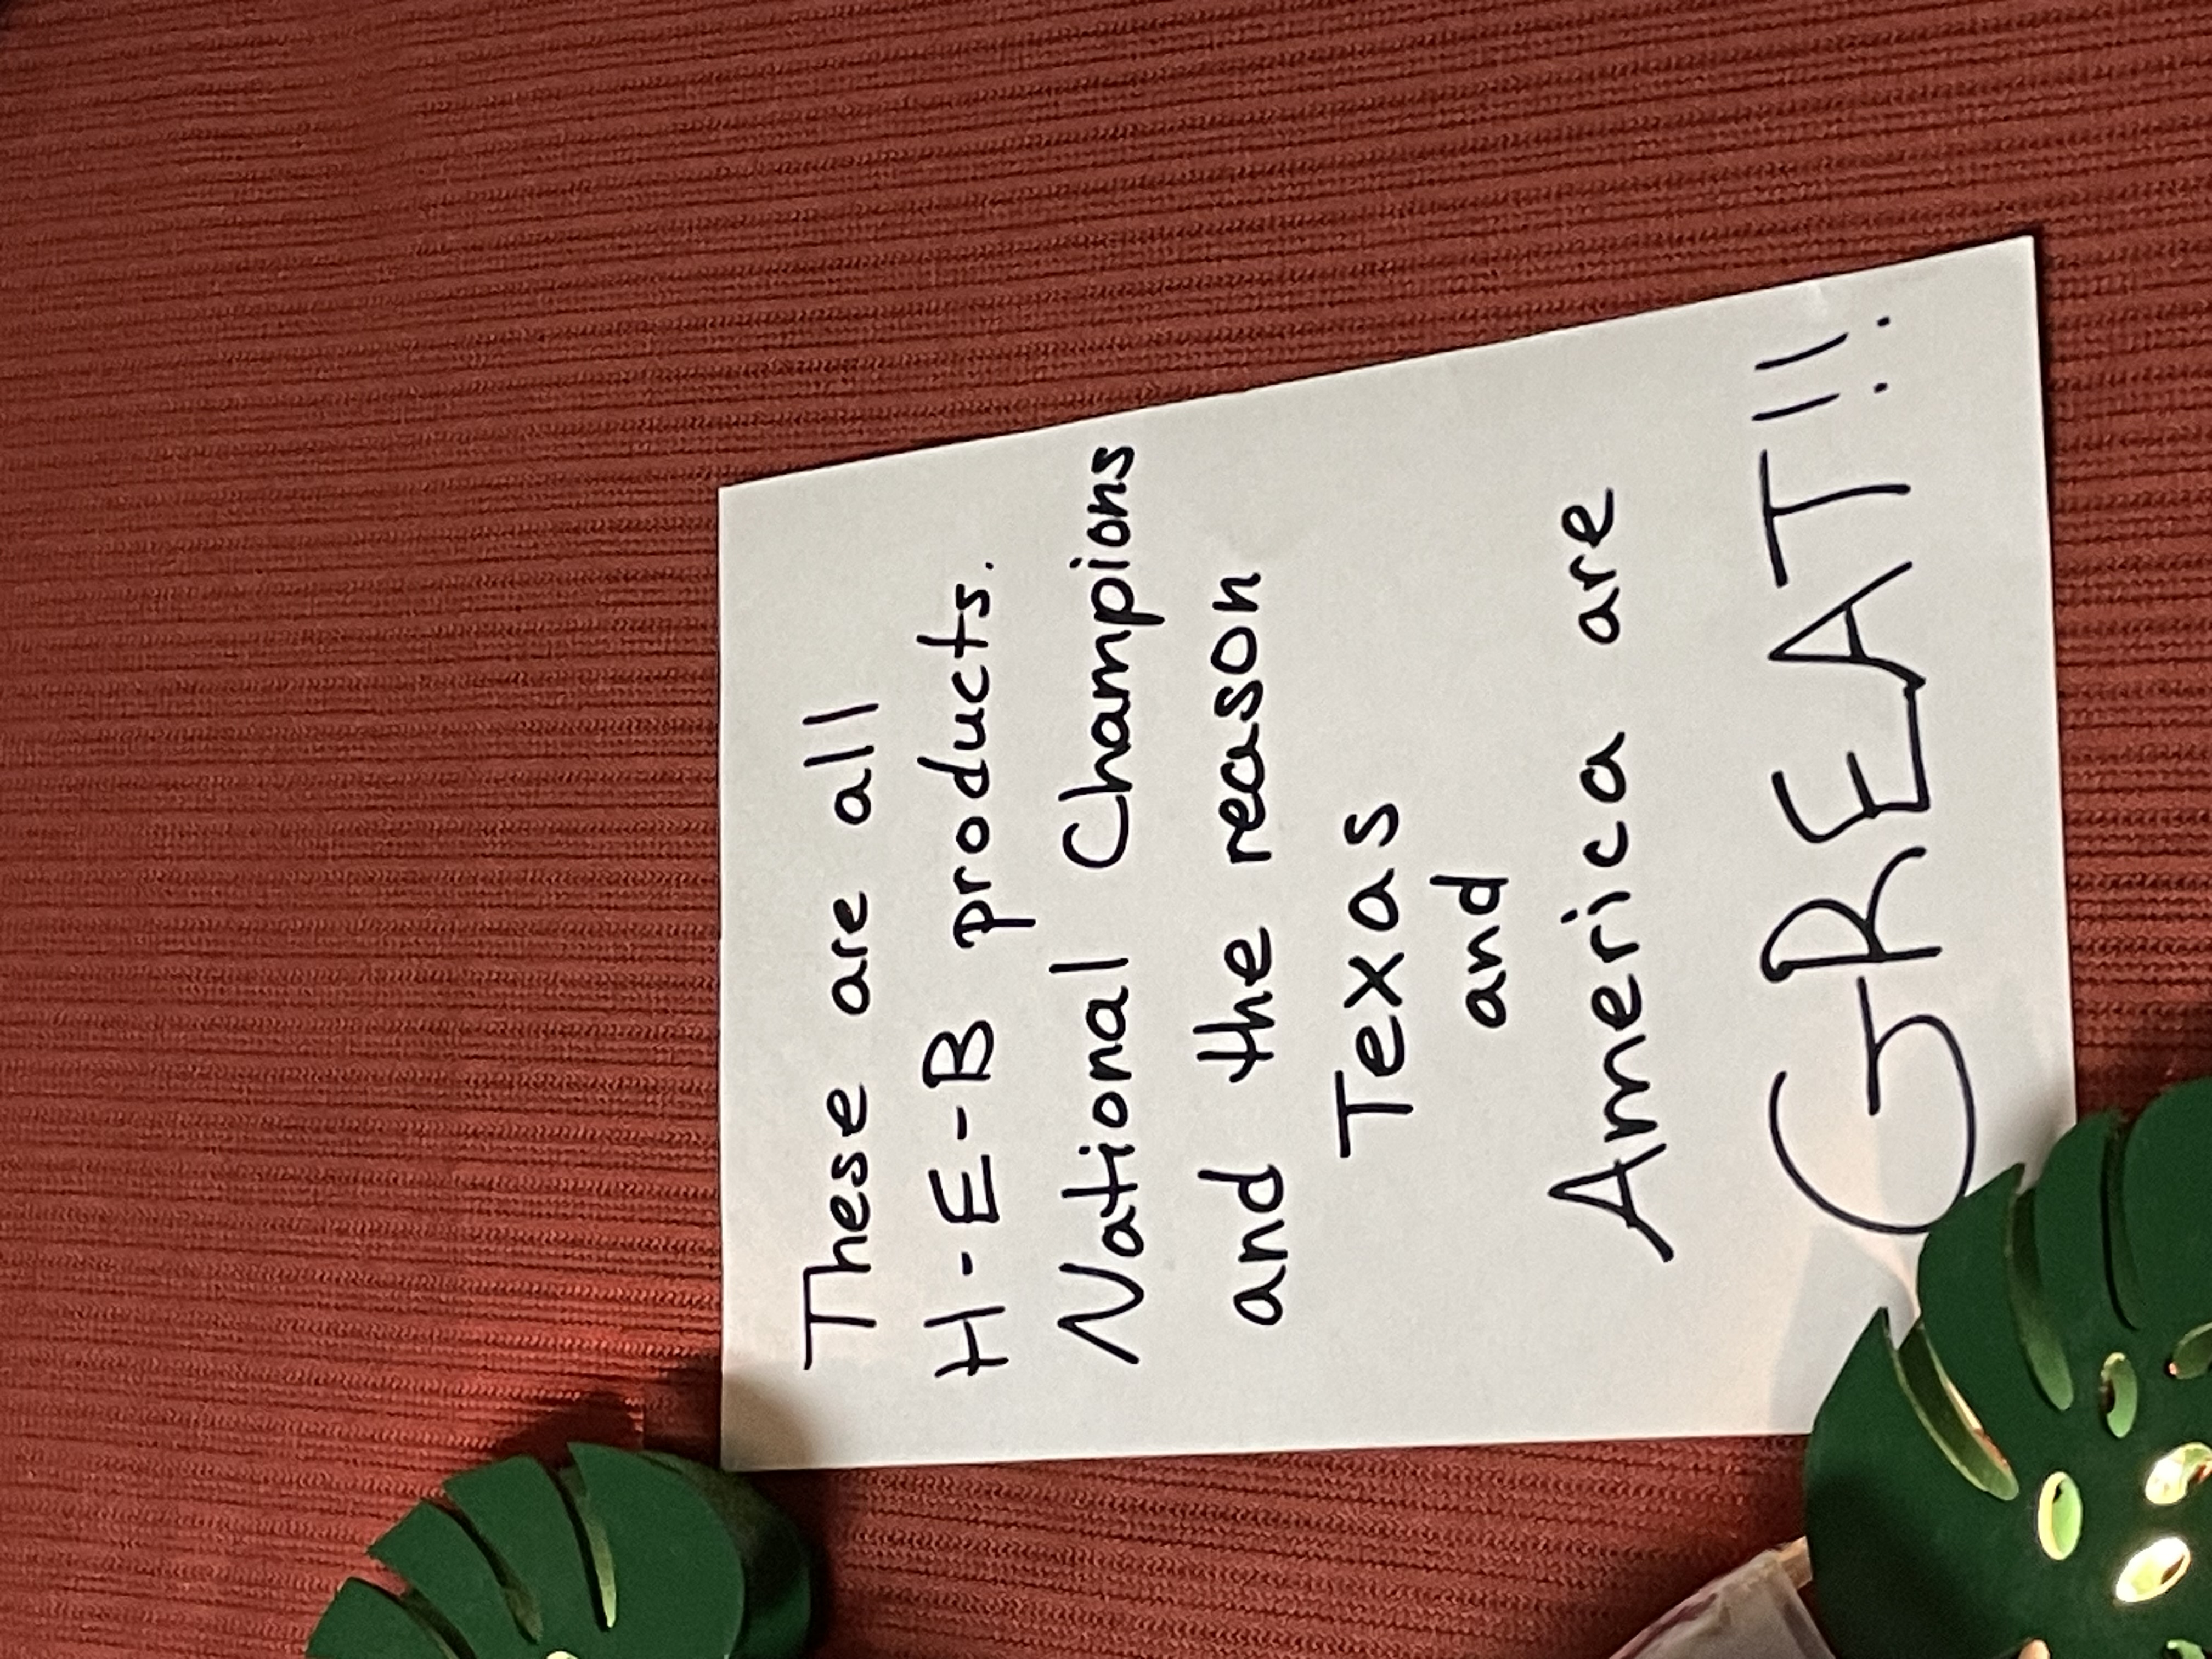 These are all
H-E-B products.
National Champions
and the reason
Texas
and
America are
GREAT!!